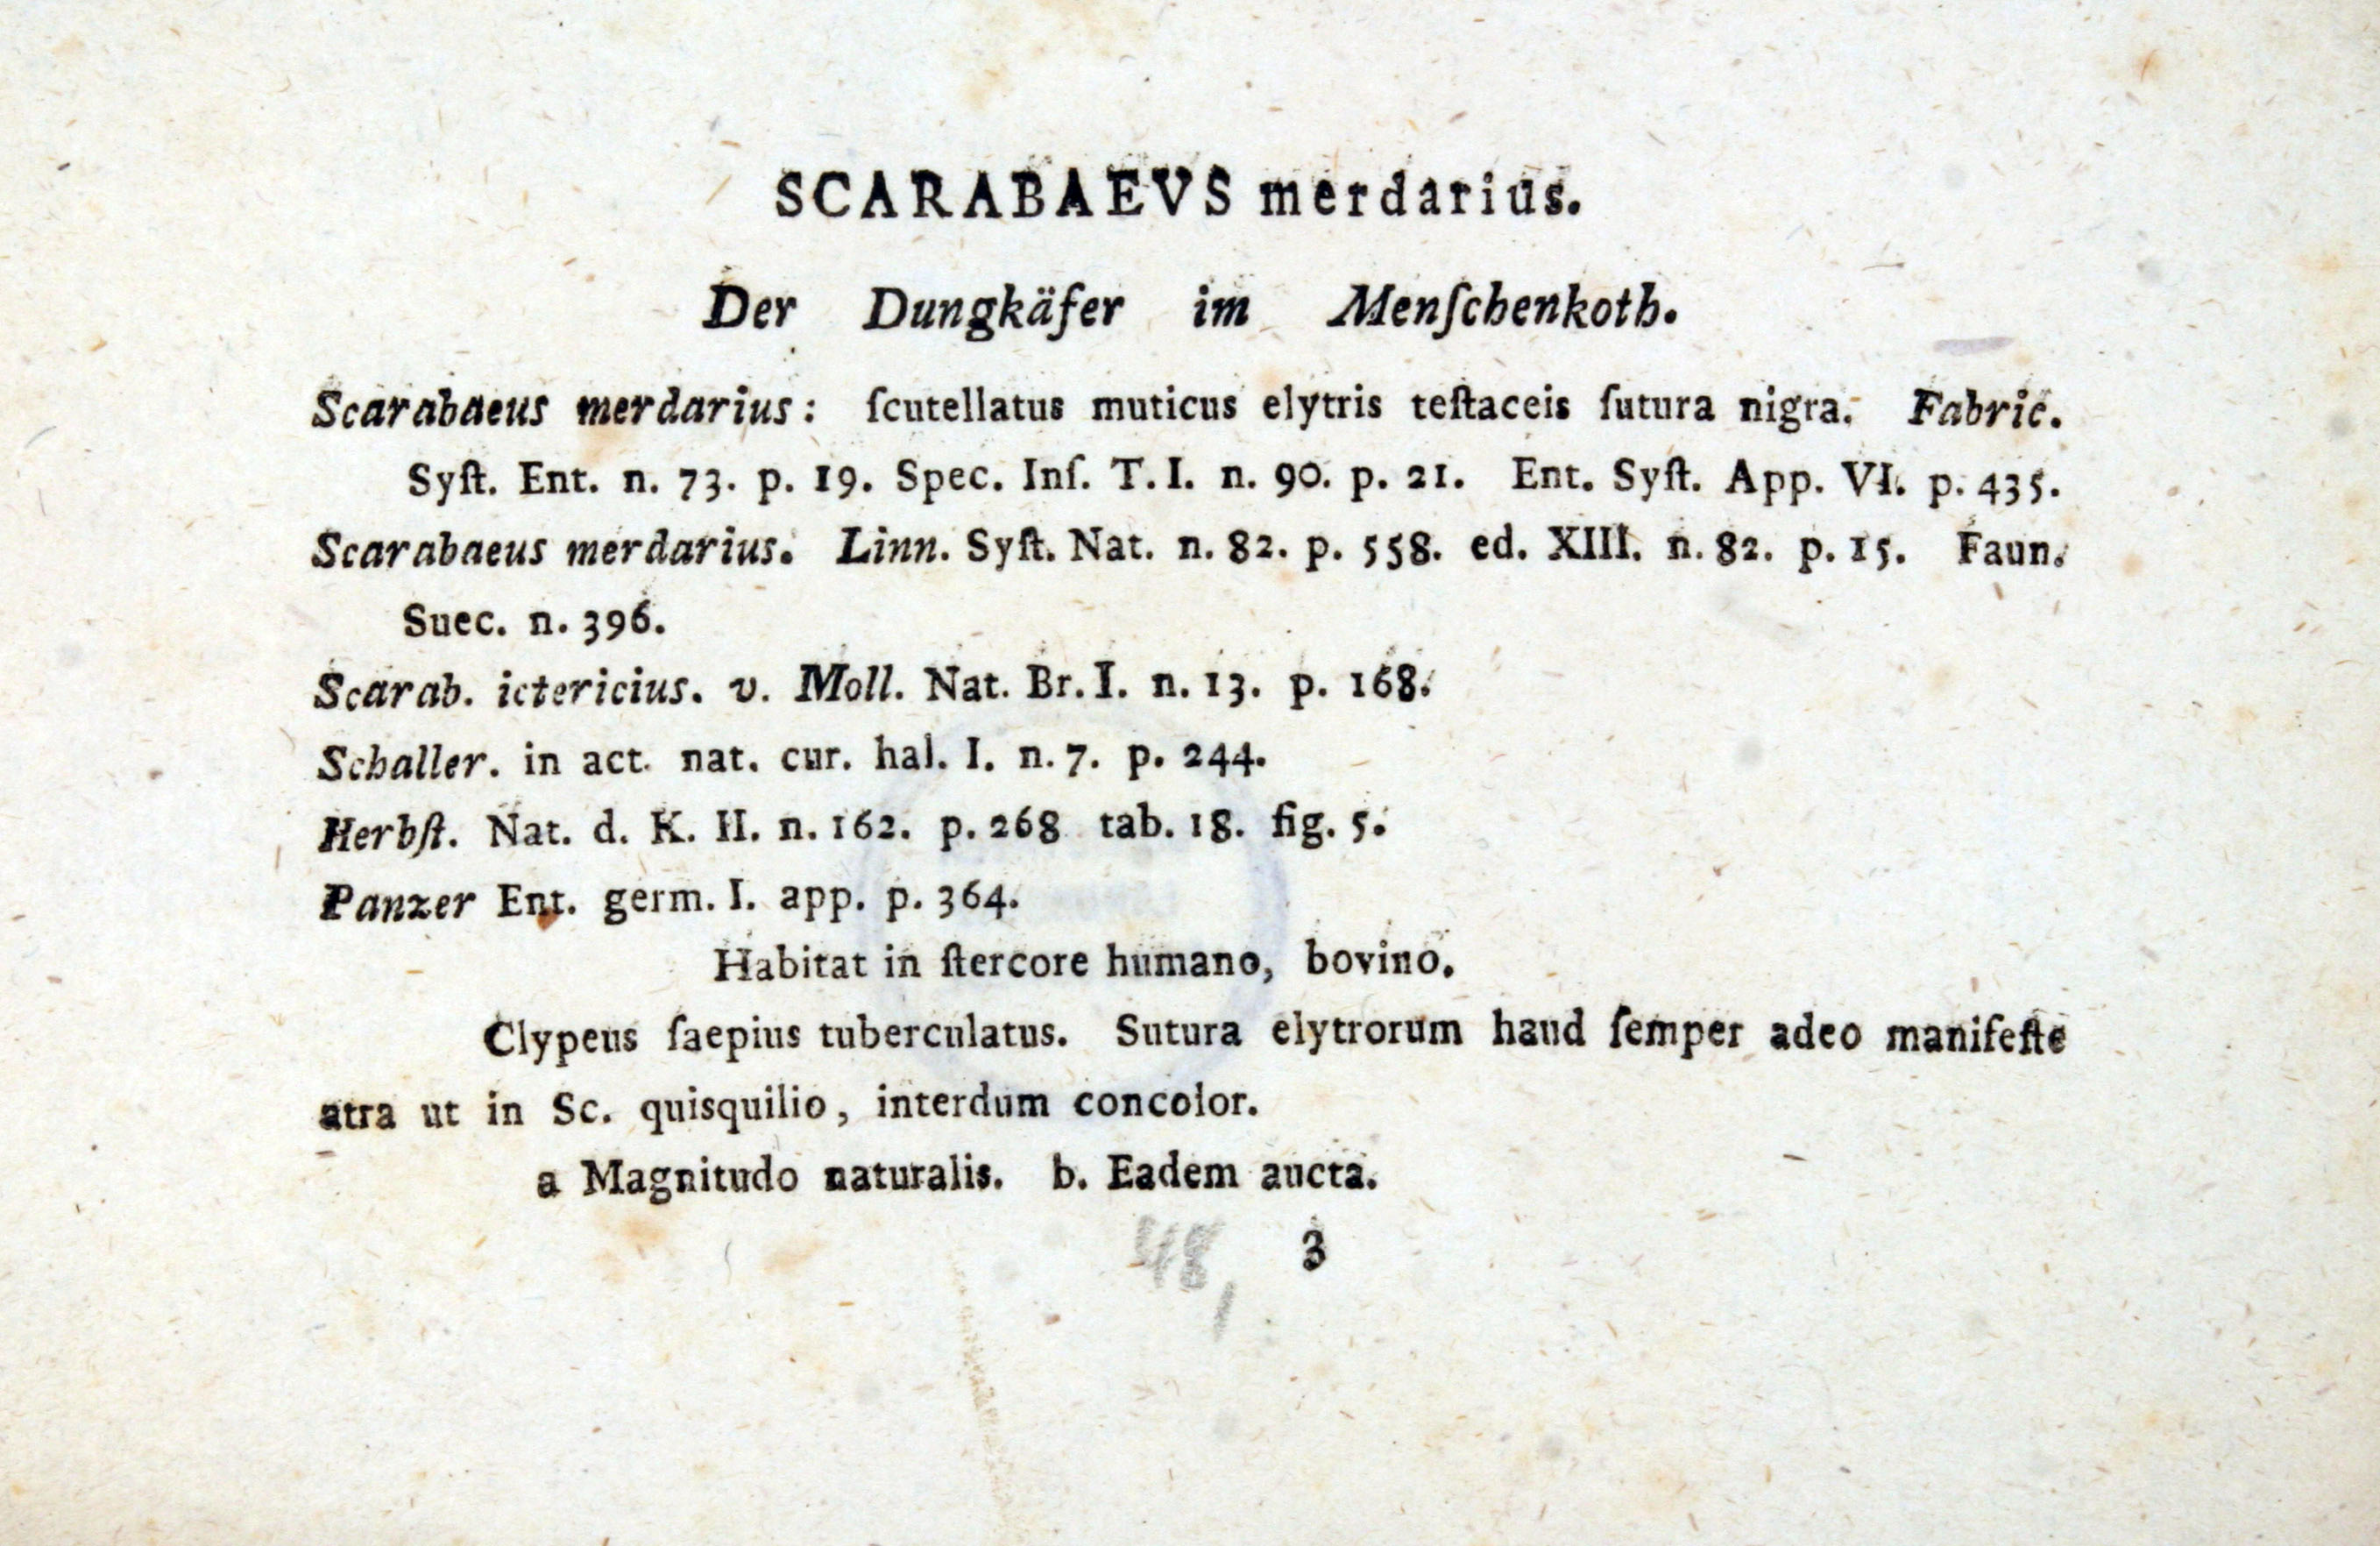 SCARABAEVS merdarius.
Der Dungkäfer im Menſchenkoth.
Scarabaeus merdarius: ſcutellatus muticus elytris teſtaceis ſutura nigra. Fabric.
Syſt. Ent. n. 73. p. 19. Spec. Inſ. T. I. n. 90. p. 21. Ent. Syſt. App. VI. p. 435.
Scarabaeus merdarius. Linn. Syſt. Nat. n. 82. p. 558. ed. XIII. n. 82. p. 15. Faun.
Suec. n. 396.
Scarab. ictericius. v. Moll. Nat. Br. I. n. 13. p. 168.
Schaller. in act. nat. cur. hal. I. n. 7. p. 244.
Herbſt. Nat. d. K. II. n. 162. p. 268 tab. 18. fig. 5.
Panzer Ent. germ. I. app. p. 364.
Habitat in ſtercore humano, bovino.
Clypeus ſaepius tuberculatus. Sutura elytrorum haud ſemper adeo manifeſte
atra ut in Sc. quisquilio, interdum concolor.
a Magnitudo naturalis. b. Eadem aucta.
48, 3